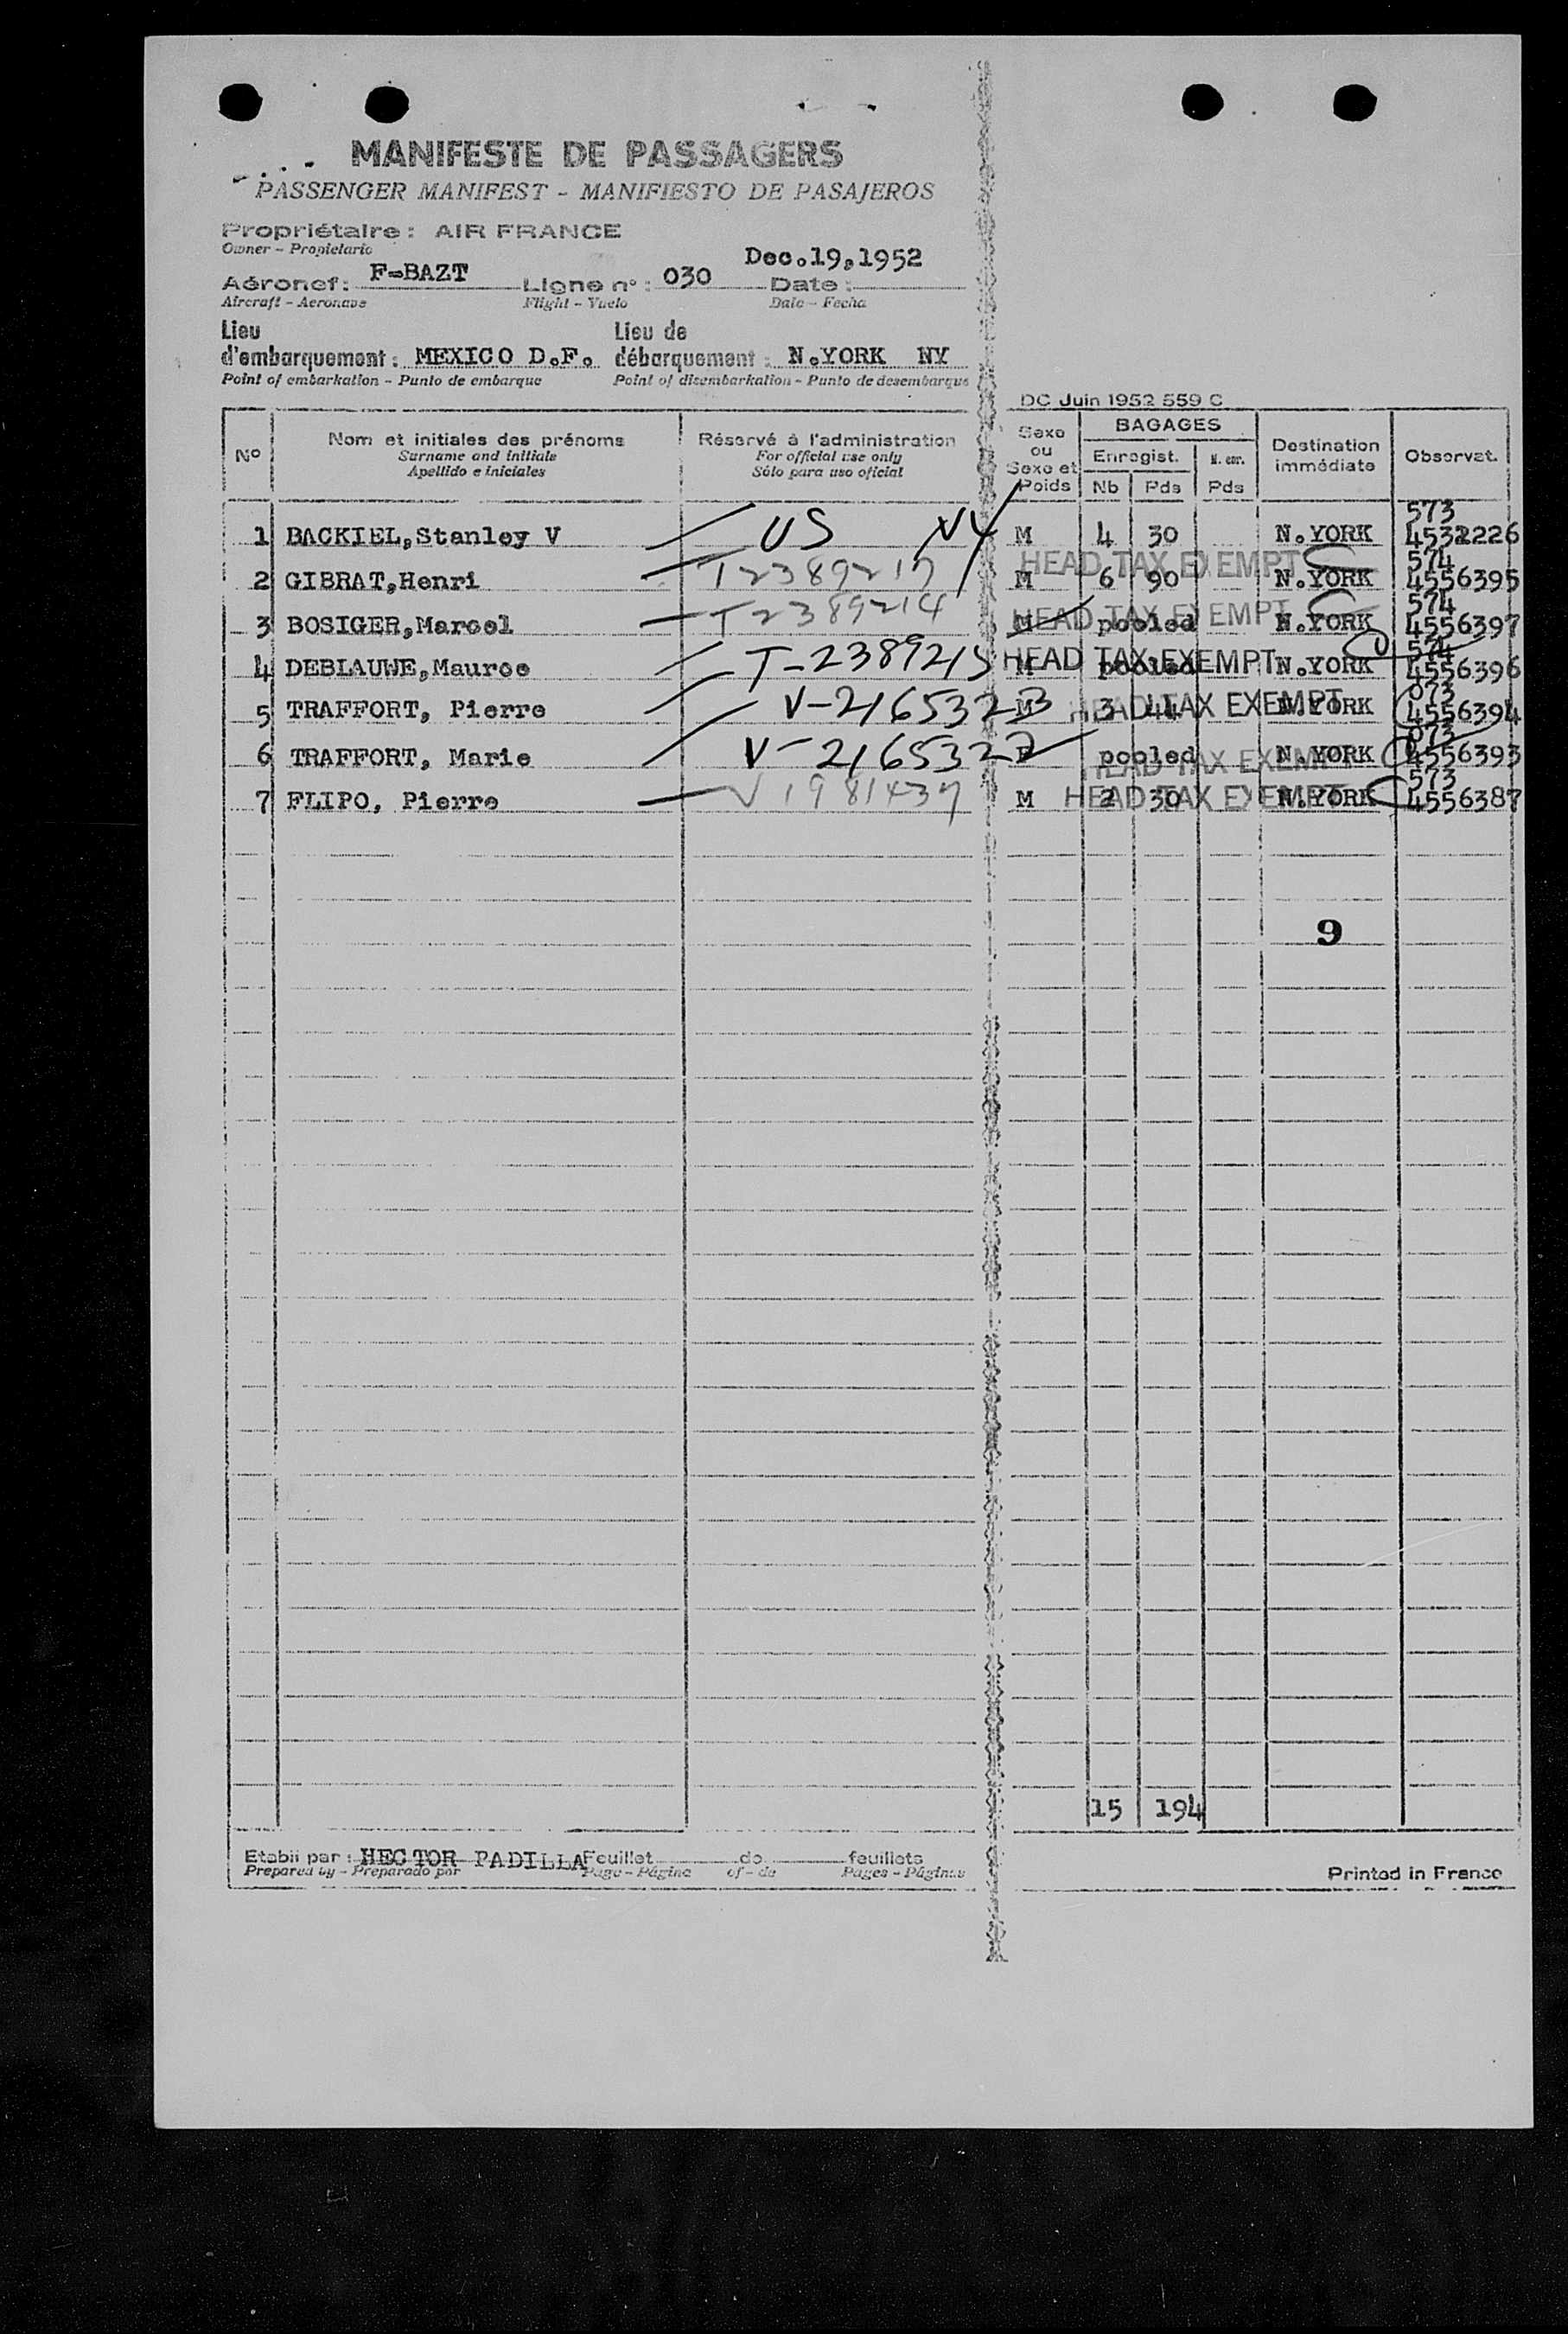 MANIFESTE DE PASSAGERS
PASSENGER MANIFEST - MANIFIESTO DE PASAJEROS
Propriétaire : AIR FRANCE
Owner - Propietario
Dec.19,1952
Aéronef : F-BAZT Ligne n° : 030 Date :
Aircraft - Aeronave Flight - Vuelo Date - Fecha
Lieu d'embarquement : MEXICO D.F. Lieu de débarquement : N.YORK NY
Point of embarkation - Punto de embarque Point of disembarkation - Punto de desembarque
DC Juin 1952 559 C
N° Nom et initiales des prénoms Réservé à l'administration Sexe ou Sexe et Poids BAGAGES Destination immédiate Observat.
Surname and initials For official use only Enregist. N. enr.
Apellido e iniciales Sólo para uso oficial Nb Pds Pds
573
1 BACKIEL,Stanley V US NY M 4 30 N.YORK 4532226
HEAD TAX EXEMPT 574
2 GIBRAT,Henri T2389217 M 6 90 N.YORK 4556395
HEAD TAX EXEMPT 574
3 BOSIGER,Marcel T2389214 M pooled N.YORK 4556397
HEAD TAX EXEMPT 574
4 DEBLAUWE,Mauroe T-2389215 M pooled N.YORK 4556396
HEAD TAX EXEMPT 073
5 TRAFFORT, Pierre V-216532 M 3 44 N.YORK 4556394
HEAD TAX EXEMPT 073
6 TRAFFORT, Marie V-216532 F pooled N.YORK 4556393
HEAD TAX EXEMPT 573
7 FLIPO, Pierre V1981437 M 2 30 N.YORK 4556387
9
15 194
Etabli par : HECTOR PADILLA Feuillet de feuillets
Prepared by - Preparado por Page - Página of - de Pages - Páginas
Printed in France